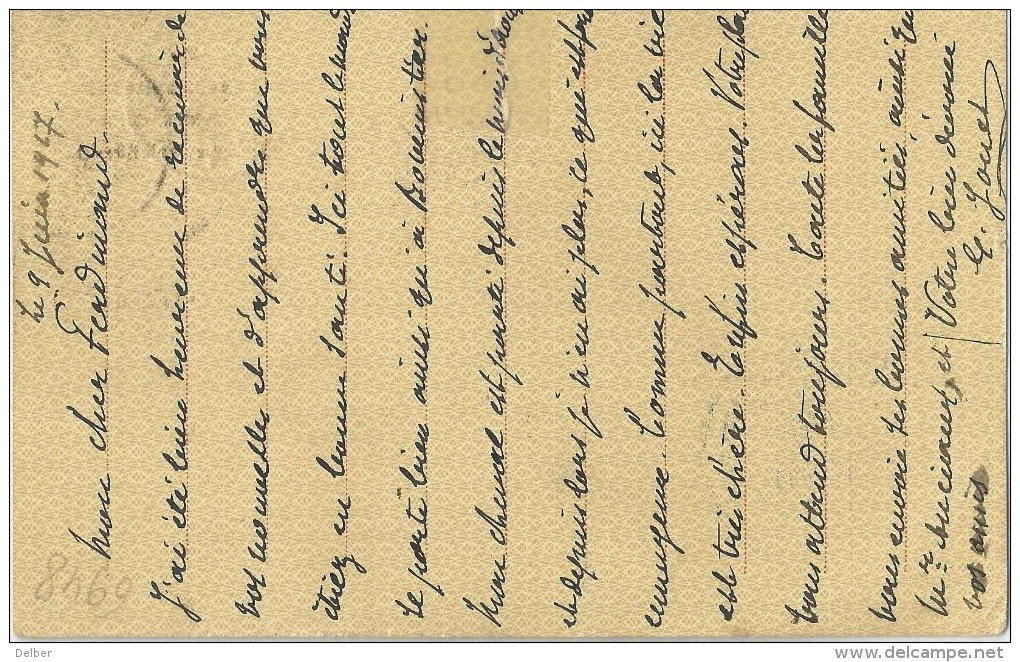 Le 9 Juin 1917.
Mon cher Ferdinand
J'ai été bien heureux de recevoir de
vos nouvelles et d'apprendre que vous
étiez en bonne santé. Ici tout le monde
se porte bien ainsi qu'à
Mon est parti depuis le mois d'août
et depuis lors je n'en ai plus, ce qui est fort
ennuyeux. Comme partout ici la vie
est très chère. Enfin espérons. Votre
vous attend toujours. Toute la famille
vous envoie ses bonnes amitiés, ainsi que
Mr et
vos amis
Votre bien dévoué
G. Jouet
8160
Delber
delcampe.net